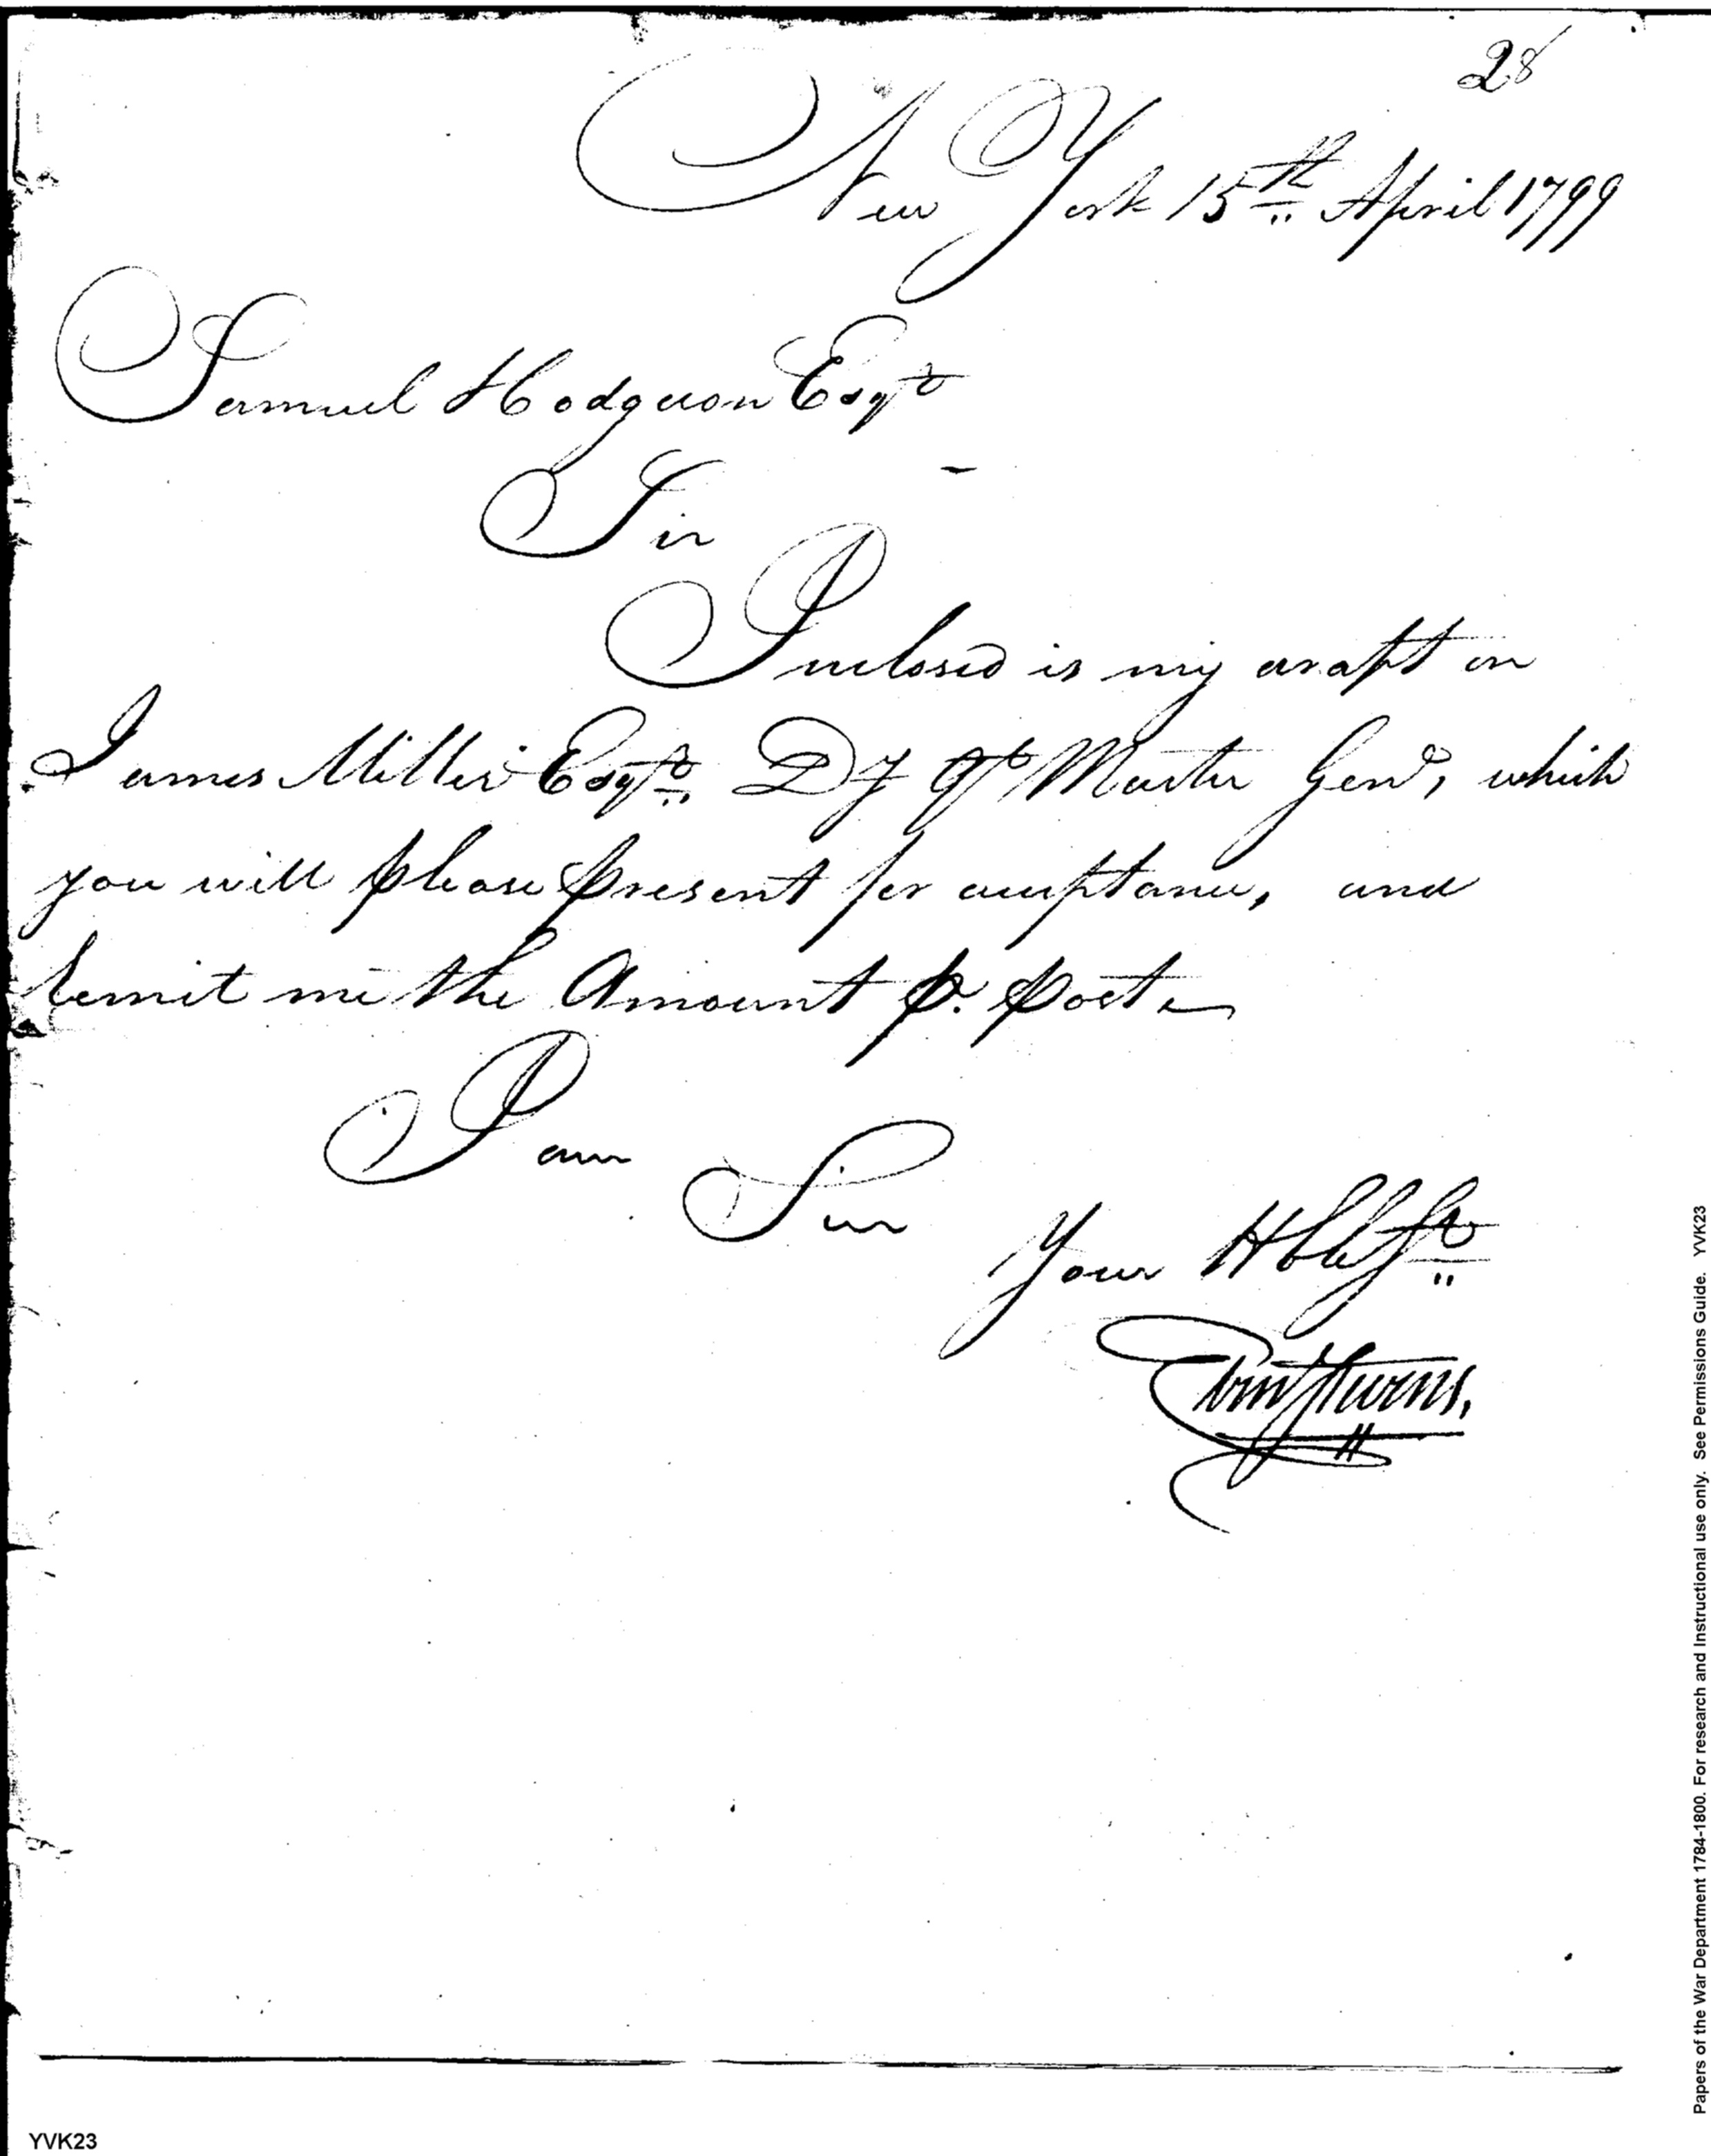 28
New York 15th April 1799
Samuel Hodgson Esqr
Sir
Inclosed is my draft on
James Miller Esqr. Dy Qr Master Genl, which
you will please present for acceptance, and
remit me the Amount p. post
I am
Sir
Your Hble St
Papers of the War Department 1784-1800. For research and Instructional use only. See Permissions Guide. YVK23
YVK23